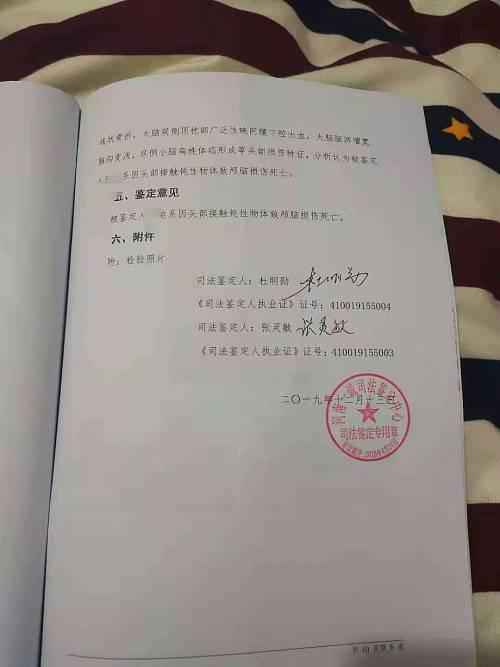 成状骨折，大脑双侧顶枕部广泛蛛网膜下腔出血，大脑脑沟增宽
脑回变浅，双侧小脑扁桃体疝形成等头部损伤特征，分析认为被鉴定
系因头部接触钝性物体致颅脑损伤死亡。
五、鉴定意见
被鉴定人 系因头部接触钝性物体致颅脑损伤死亡。
六、附件
附：检验照片
司法鉴定人：杜明勋
《司法鉴定人执业证》证号：410019155004
司法鉴定人：张灵敏 张灵敏
《司法鉴定人执业证》证号：410019155003
二〇一九年十二月十三日
司法鉴定中心
司法鉴定专用章